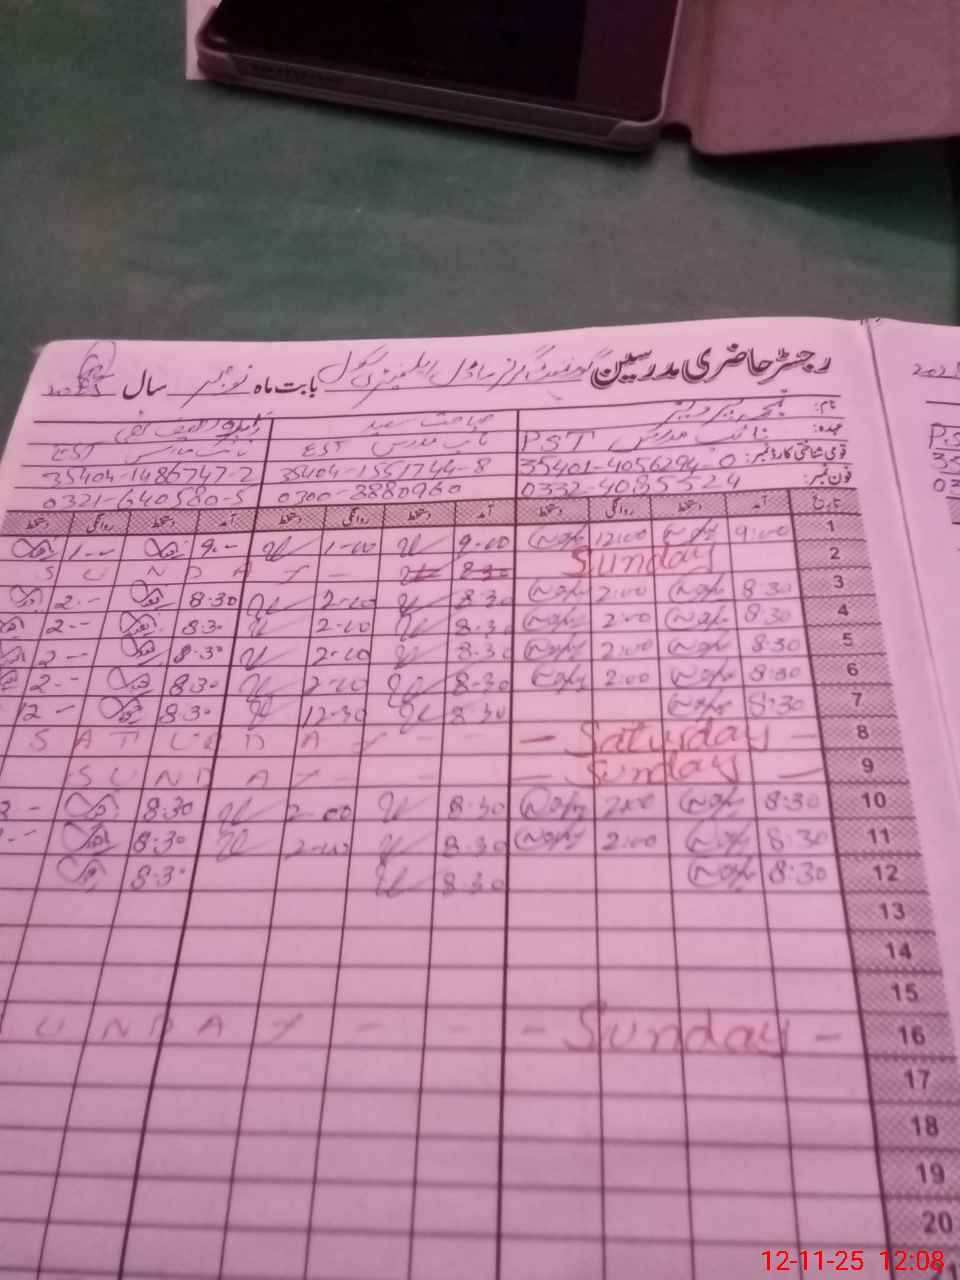 رجسٹر حاضری مدرسین گورنمنٹ گرلز ماڈل ایلیمنٹری سکول بابت ماہ نومبر سال 2025
نام:
عہدہ: نائب مدرس PST نائب مدرس EST EST
قومی شناختی کارڈ نمبر: 35401-4056294-0 35404-1551744-8 35404-1486747-2
فون نمبر: 0332-4085524 0300-8880960 0321-640580-5
تاریخ آمد دستخط روانگی دستخط آمد دستخط روانگی دستخط آمد دستخط روانگی دستخط
1 9:00 12:00 9-00 1-00 9-- 1--
2 Sunday 8:30 SUNDAY
3 8:30 2:00 8:30 2-00 8:30 2--
4 8:30 2:00 8:30 2-00 8:30 2--
5 8:30 2:00 8:30 2-00 8:30 2--
6 8:30 2:00 8:30 2-00 8:30 2--
7 8:30 8:30 12-30 8:30 12-
8 - Saturday - SATURDAY - -
9 - Sunday - SUNDAY - -
10 8:30 2:00 8:30 2-00 8:30 2-
11 8:30 2:00 8:30 2-00 8:30
12 8:30 8:30 8:30
13
14
15
16 - Sunday - UNDAY - - -
17
18
19
20
2025
PS
35
03
12-11-25 12:08